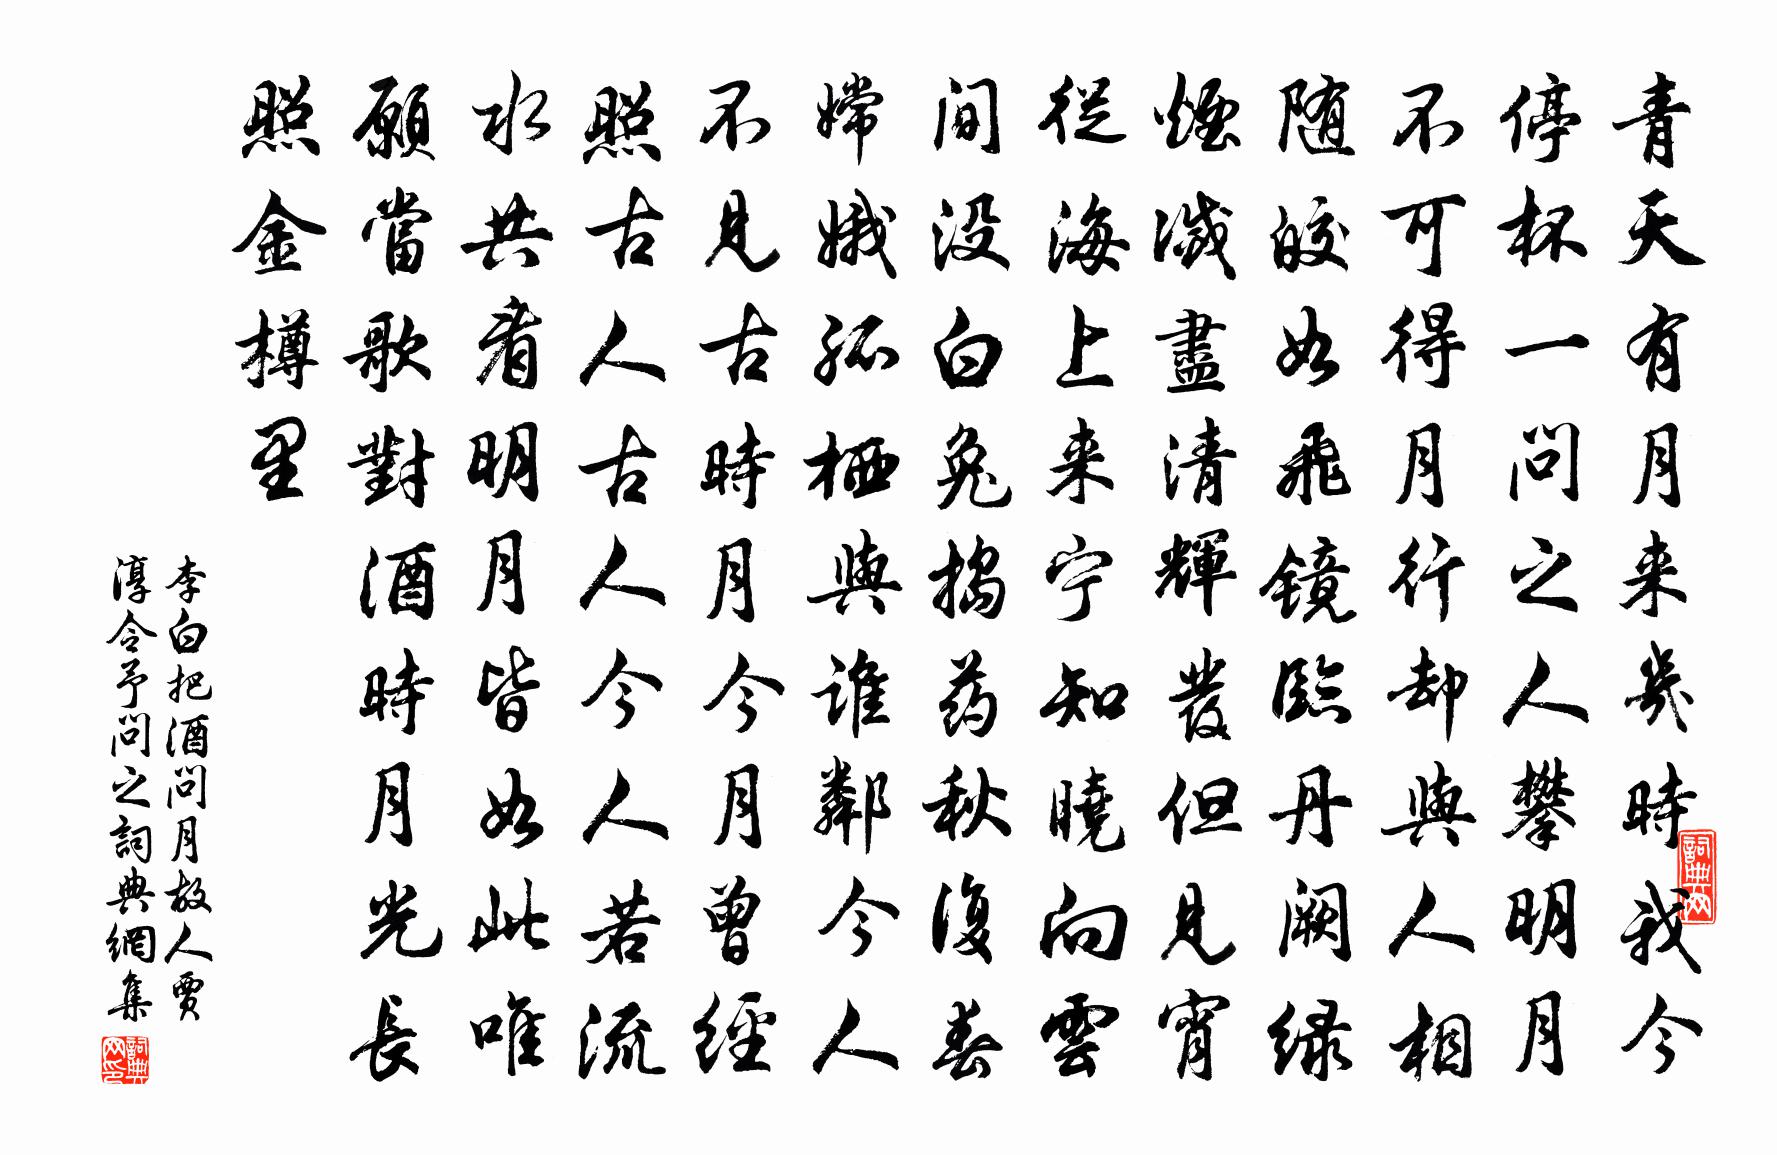 青天有月来幾時我今
停杯一問之人攀明月
不可得月行却與人相
随皎如飛鏡臨丹阙緑
煙滅盡清輝發但見宵
從海上来宁知曉向雲
间没白兔搗药秋復春
嫦娥孤栖與誰鄰今人
不見古時月今月曾經
照古人古人今人若流
水共看明月皆如此唯
願當歌對酒時月光長
照金樽里
李白把酒問月故人賈
淳令予問之詞典網集
詞典网
詞典网印